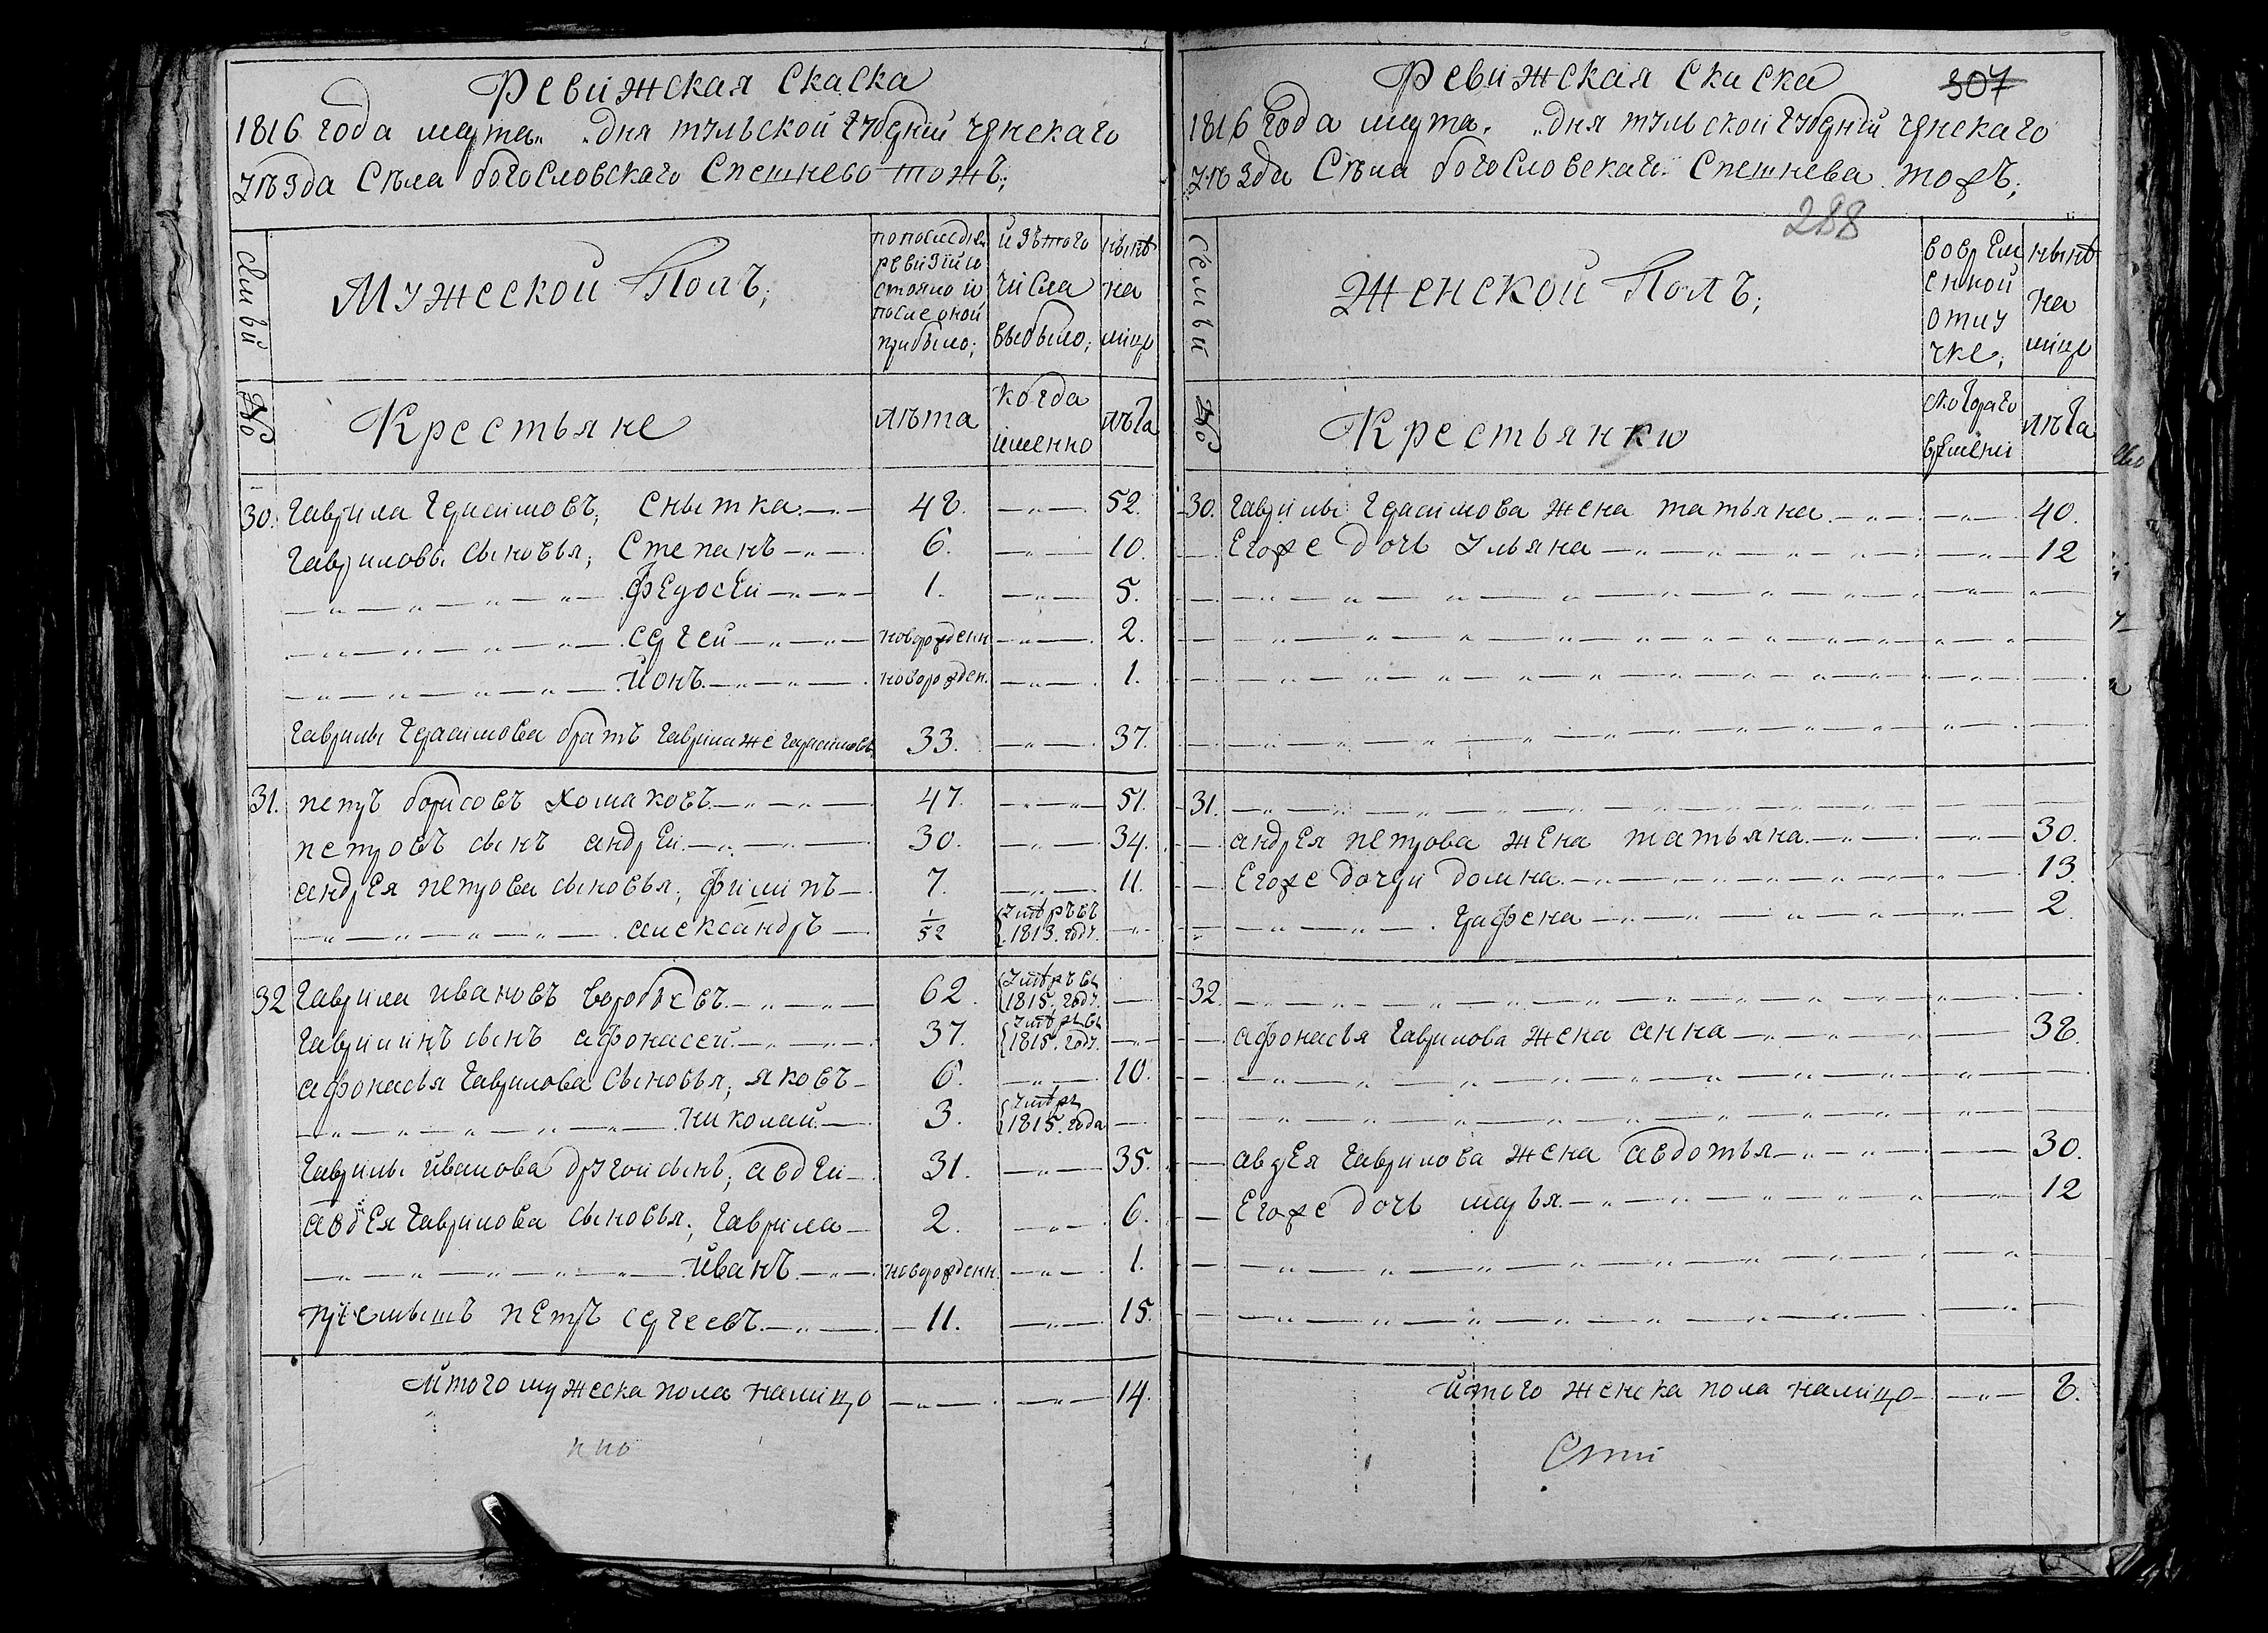 Ревижская скаска
1816 года марта дня тульской губернии чернскаго
уѣзда Села богословскаго Спешнево тожъ;
семьи
Мужескои Полъ;
по последней ревизии состояло и после оной прибыло;
изъ того числа выбыло;
нынѣ на лицо
№
Крестьяне
лѣта
когда именно
лѣта
30. гаврила герасимовъ, снытка 48. 52.
гавриловы сыновья, степанъ 6. 10.
федосеи 1. 5.
сергеи новорожденн 2.
ионъ новорожден. 1.
гаврилы герасимова братъ гаврила же герасимовъ 33. 37.
31. петръ борисовъ хомаковъ 47. 51.
петровъ сынъ андреи 30. 34.
андрея петрова сыновья, филипъ 7. 11.
александръ 1/52 умѣръ въ 1813. году.
32 гаврила ивановъ воробьевъ 62. умѣръ въ 1815. году.
гаврилинъ сынъ афонасеи 37. умѣръ въ 1815. году.
афонасья гаврилова сыновья, яковъ 6. 10.
николаи 3. умѣръ 1815. года
гаврилы иванова другои сынъ, авдеи 31. 35.
авдея гаврилова сыновья, гаврила 2. 6.
иванъ новорожденн 1.
приемышъ петръ сергеевъ 11. 15.
итого мужеска пола налицо 14.
Ревижская скаска
307
1816 года марта дня тульской губернии чернскаго
уѣзда Села богословскаго Спешнева тожъ;
288
семьи
Женской Полъ;
во временной отлучке;
нынѣ на лицо
№
Крестьянки
с котораго времени
лѣта
30. гаврилы герасимова жена татьяна 40.
Егоже дочь ульяна 12
31.
андрея петрова жена татьяна 30.
Егоже дочери домна 13.
графена 2.
32.
афонасья гаврилова жена анна 38.
авдея гаврилова жена авдотья 30.
Егоже дочь марья 12
итого женска пола налицо 8.